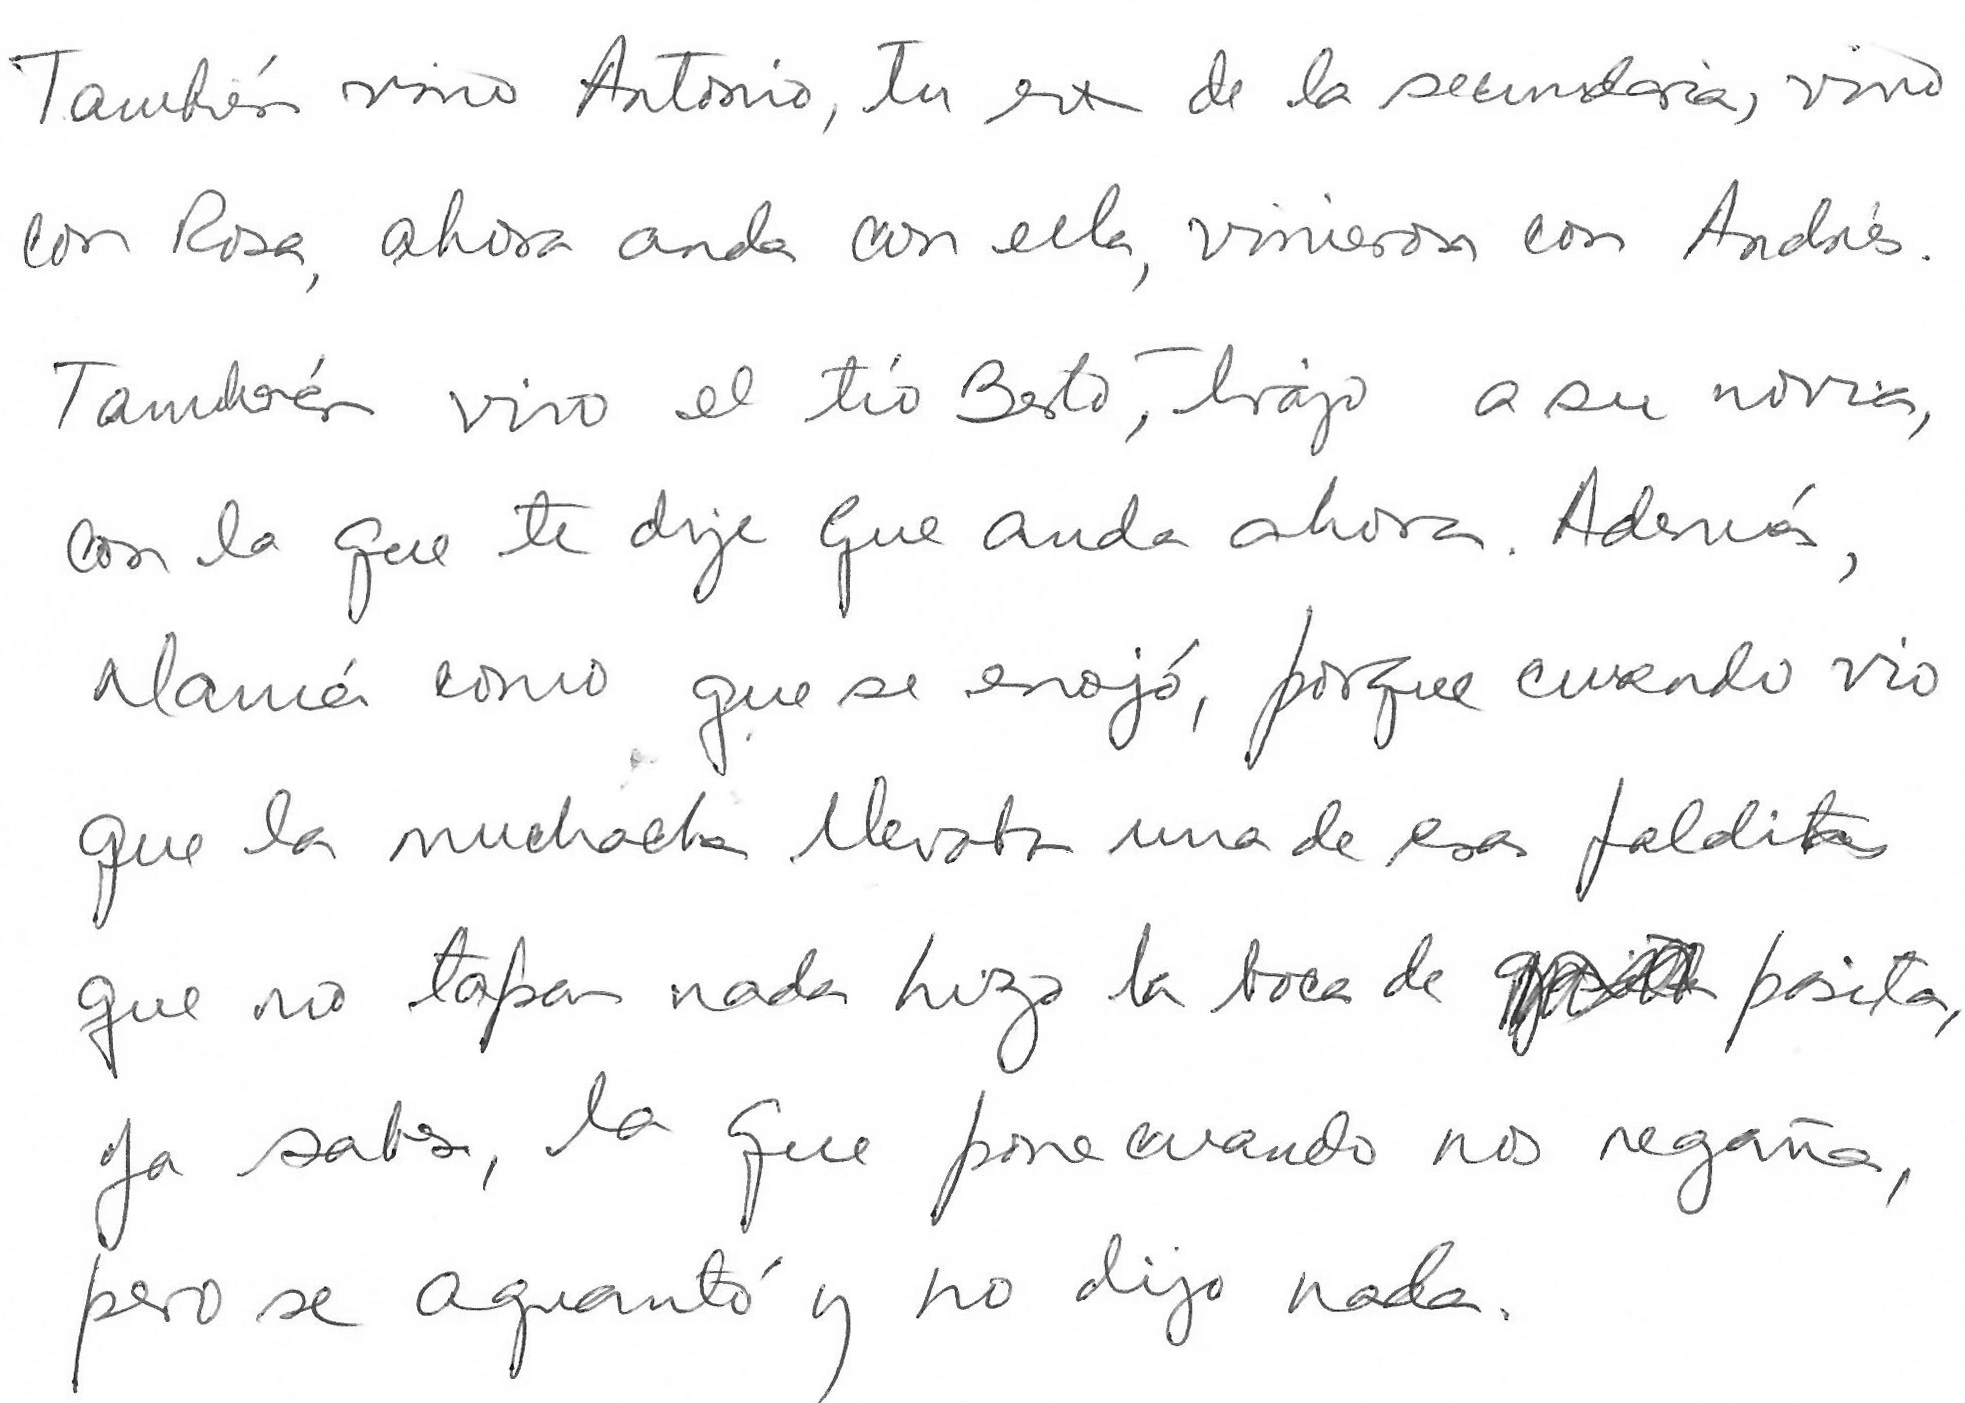 También vino Antonio, tu ex de la secundaria, vino
con Rosa, ahora anda con ella, vinieron con Andrés.
También vino el tío Beto, trajo a su novia,
con la que te dije que anda ahora. Además,
Mamá como que se enojó, porque cuando vio
que la muchacha llevaba una de esas falditas
que no tapan nada hizo la boca de pasita,
ya sabes, la que pone cuando nos regaña,
pero se aguantó y no dijo nada.